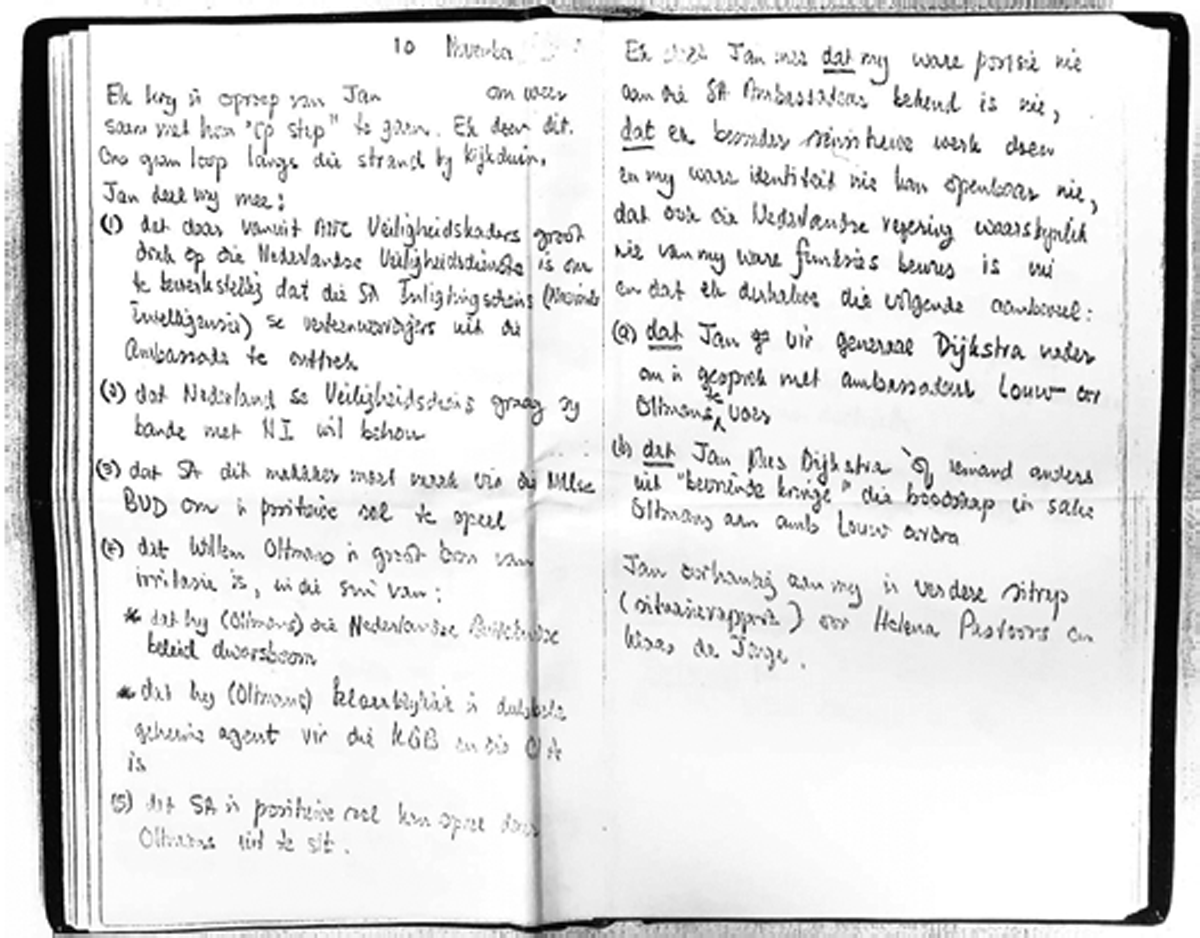 10 November
Ek kry 'n oproep van Jan om weer
saam met hom "op stap" te gaan. Ek doen dit.
Ons gaan loop langs die strand by Kijkduin.
Jan deel my mee:
(1) dat daar vanuit ANC Veiligheidskaders groot
druk op die Nederlandse Veiligheidsdienste is om
te bewerkstellig dat die SA Inligtingsdiens (Nasionale
Intelligensie) se verteenwoordigers uit die
Ambassade te onttrek
(2) dat Nederland se Veiligheidsdiens graag sy
bande met NI wil behou
(3) dat SA dit makliker moet maak vir die
BVD om 'n positiewe rol te speel
(4) dat Willem Oltmans 'n groot bron van
irritasie is, in die sin van:
* dat hy (Oltmans) die Nederlandse Buitelandse
beleid dwarsboom
* dat hy (Oltmans) klaarblyklik 'n dubbele
geheime agent vir die KGB en die CIA
is
(5) dat SA 'n positiewe rol kan speel deur
Oltmans uit te sit.
Ek deel Jan mee dat my ware posisie nie
aan die SA Ambassadeur bekend is nie,
dat ek besonder sensitiewe werk doen
en my ware identiteit nie kan openbaar nie,
dat ook die Nederlandse regering waarskynlik
nie van my ware funksies bewus is nie
en dat ek derhalwe die volgende aanbeveel:
(a) dat Jan vir generaal Dijkstra nader
om 'n gesprek met ambassadeur Louw oor
Oltmans te voer
(b) dat Jan Mnr Dijkstra òf iemand anders
uit "bevriende kringe" die boodskap in sake
Oltmans aan amb Louw oordra
Jan oorhandig aan my 'n verdere sitrap
(situasierapport) oor Helena Pastoors en
Klaas de Jonge.